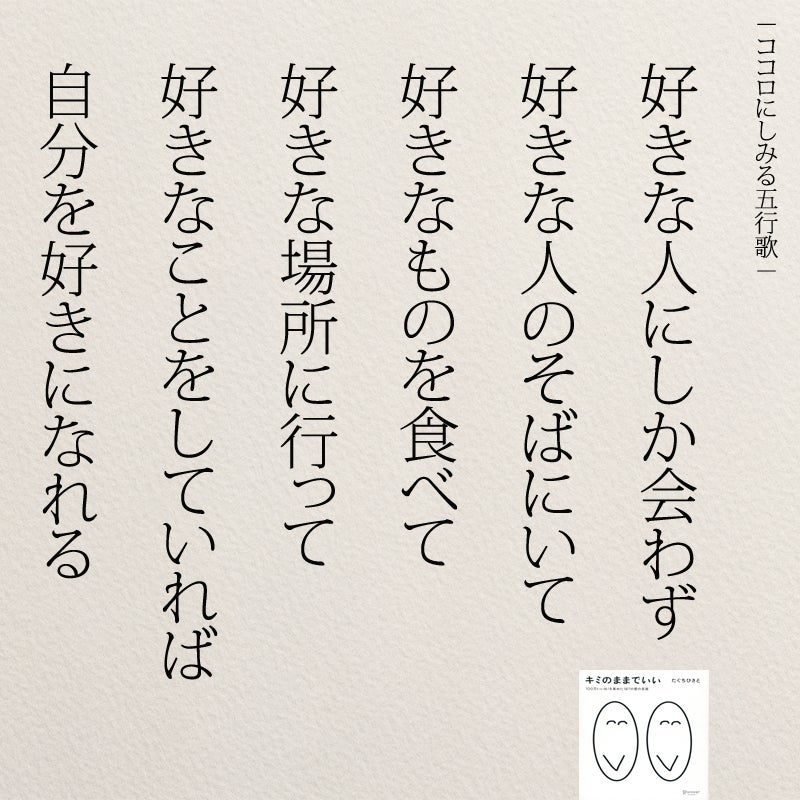 ―ココロにしみる五行歌―
好きな人にしか会わず
好きな人のそばにいて
好きなものを食べて
好きな場所に行って
好きなことをしていれば
自分を好きになれる
キミのままでいい
たぐちひさと